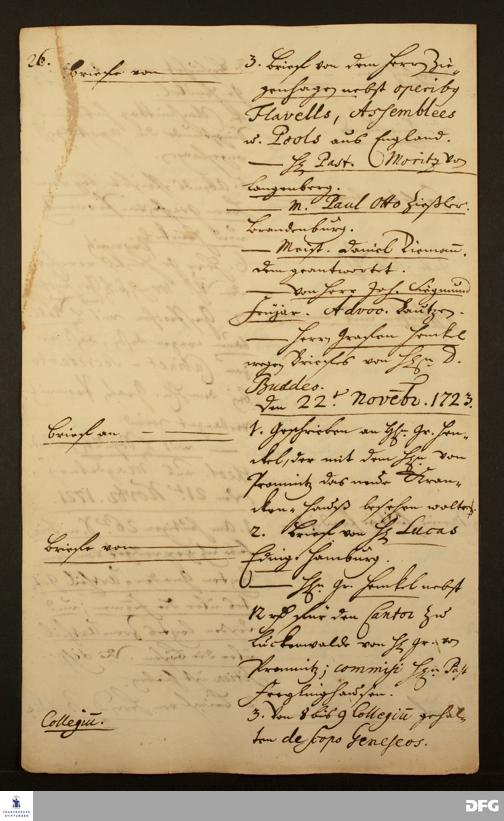 26.
Briefe von
3. Brief von dem Herrn Zie-
genhagen nebst operibg
Flavells, Assemblees
u. Pools aus England.
— H. Past. Moritz von
Langenberg.
— M. Paul Otto Zießler.
Brandenburg.
— Meist. Daniel Riemann.
dem geantwortet.
— von Herr Joh. Siegmund
Advoc. Bautzen.
— Herrn Grafen Henkel
wegen Briefes von H. D.
Buddeo.
Den 22t. Novebr. 1723.
Brief an
1. Geschrieben an H. Gr. Hen-
ckel, der mit dem H. von
Promnitz das neue Kran-
cken-Hauß besehen wolte.
Briefe von
2. Brief von H. Lucas
Edinge Hamburg.
— H. Gr. Henkel nebst
12 rth für den Cantor zu
Luckenwalde von H. Gr. von
Promnitz; H. Past
Freylinghausen.
Collegiu.
3. Von 8 bis 9 Collegiu gehal-
ten de scopo Geneseos.
FRANCKESCHE
STIFTUNGEN
DFG